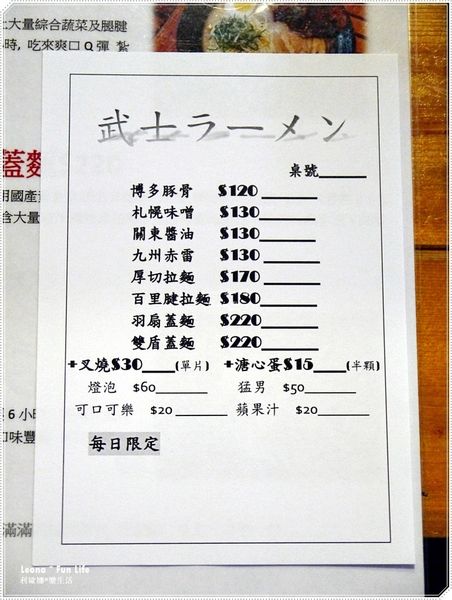 大量綜合蔬菜及腿腱
時, 吃來爽口Q彈 紮
蓋麵
用國產
含大量
武士ラーメン
桌號______
博多豚骨 $120______
札幌味噌 $130______
關東醬油 $130______
九州赤雷 $130______
厚切拉麵 $170______
百里腱拉麵 $180______
羽扇蓋麵 $220______
雙盾蓋麵 $220______
+叉燒$30____(單片) +溏心蛋$15____(半顆)
燈泡 $60______ 猛男 $50______
可口可樂 $20______ 蘋果汁 $20______
每日限定
6 小時
口味豐
滿滿
Leona ~ Fun Life
利歐娜*樂生活